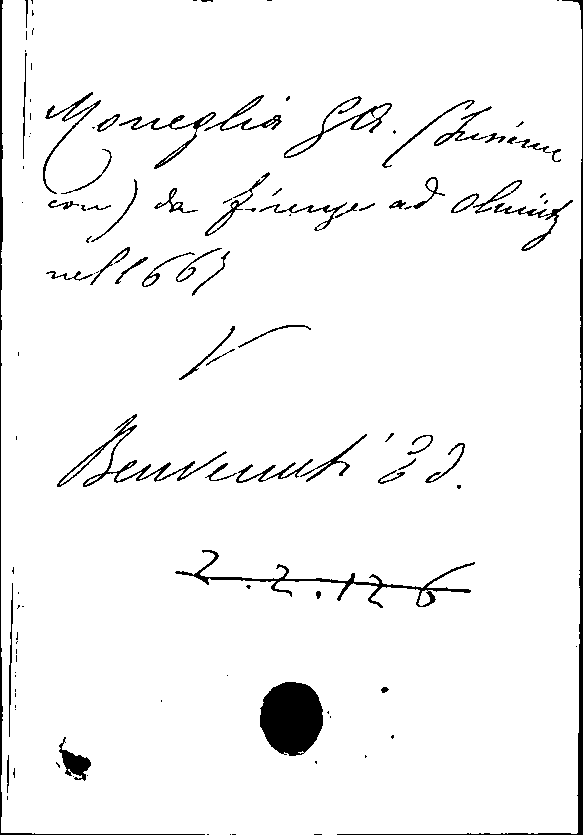 Moneglia GA. (Insieme
con) da Firenze ad Olmütz
nel 1667
V
Benvenuti
2.2.126